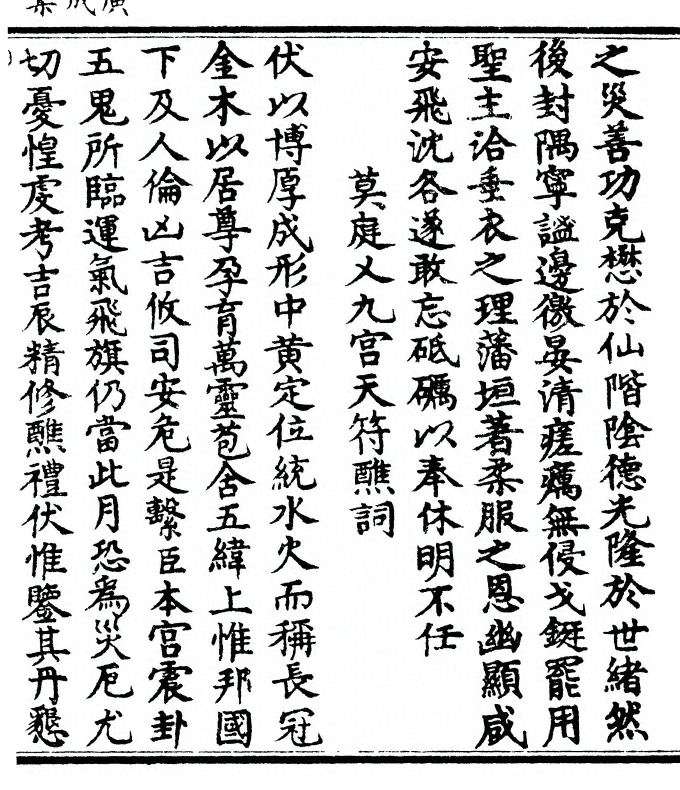 之災善功克懋於仙階陰德光隆於世緒然
後封隅寧謐邊徼晏清瘥癘無侵戈鋋罷用
聖主洽垂衣之理藩垣著柔服之恩幽顯咸
安飛沈各遂敢忘砥礪以奉休明不任
莫庭乂九宮天符醮詞
伏以博厚成形中黃定位統水火而稱長冠
金木以居尊孕育萬靈苞含五緯上惟邦國
下及人倫凶吉攸司安危是繫臣本宮震卦
五鬼所臨運氣飛旗仍當此月恐為災厄尤
切憂惶虔考吉辰精修醮禮伏惟鑒其丹懇